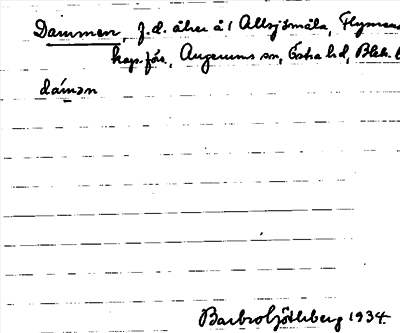 Dammen, f.d. åker å 1 Allsjömåla, Flymens
kap. förs, Augerums sn, Östra hd, Blek. l
dámǝn
Barbro Götherberg 1934.